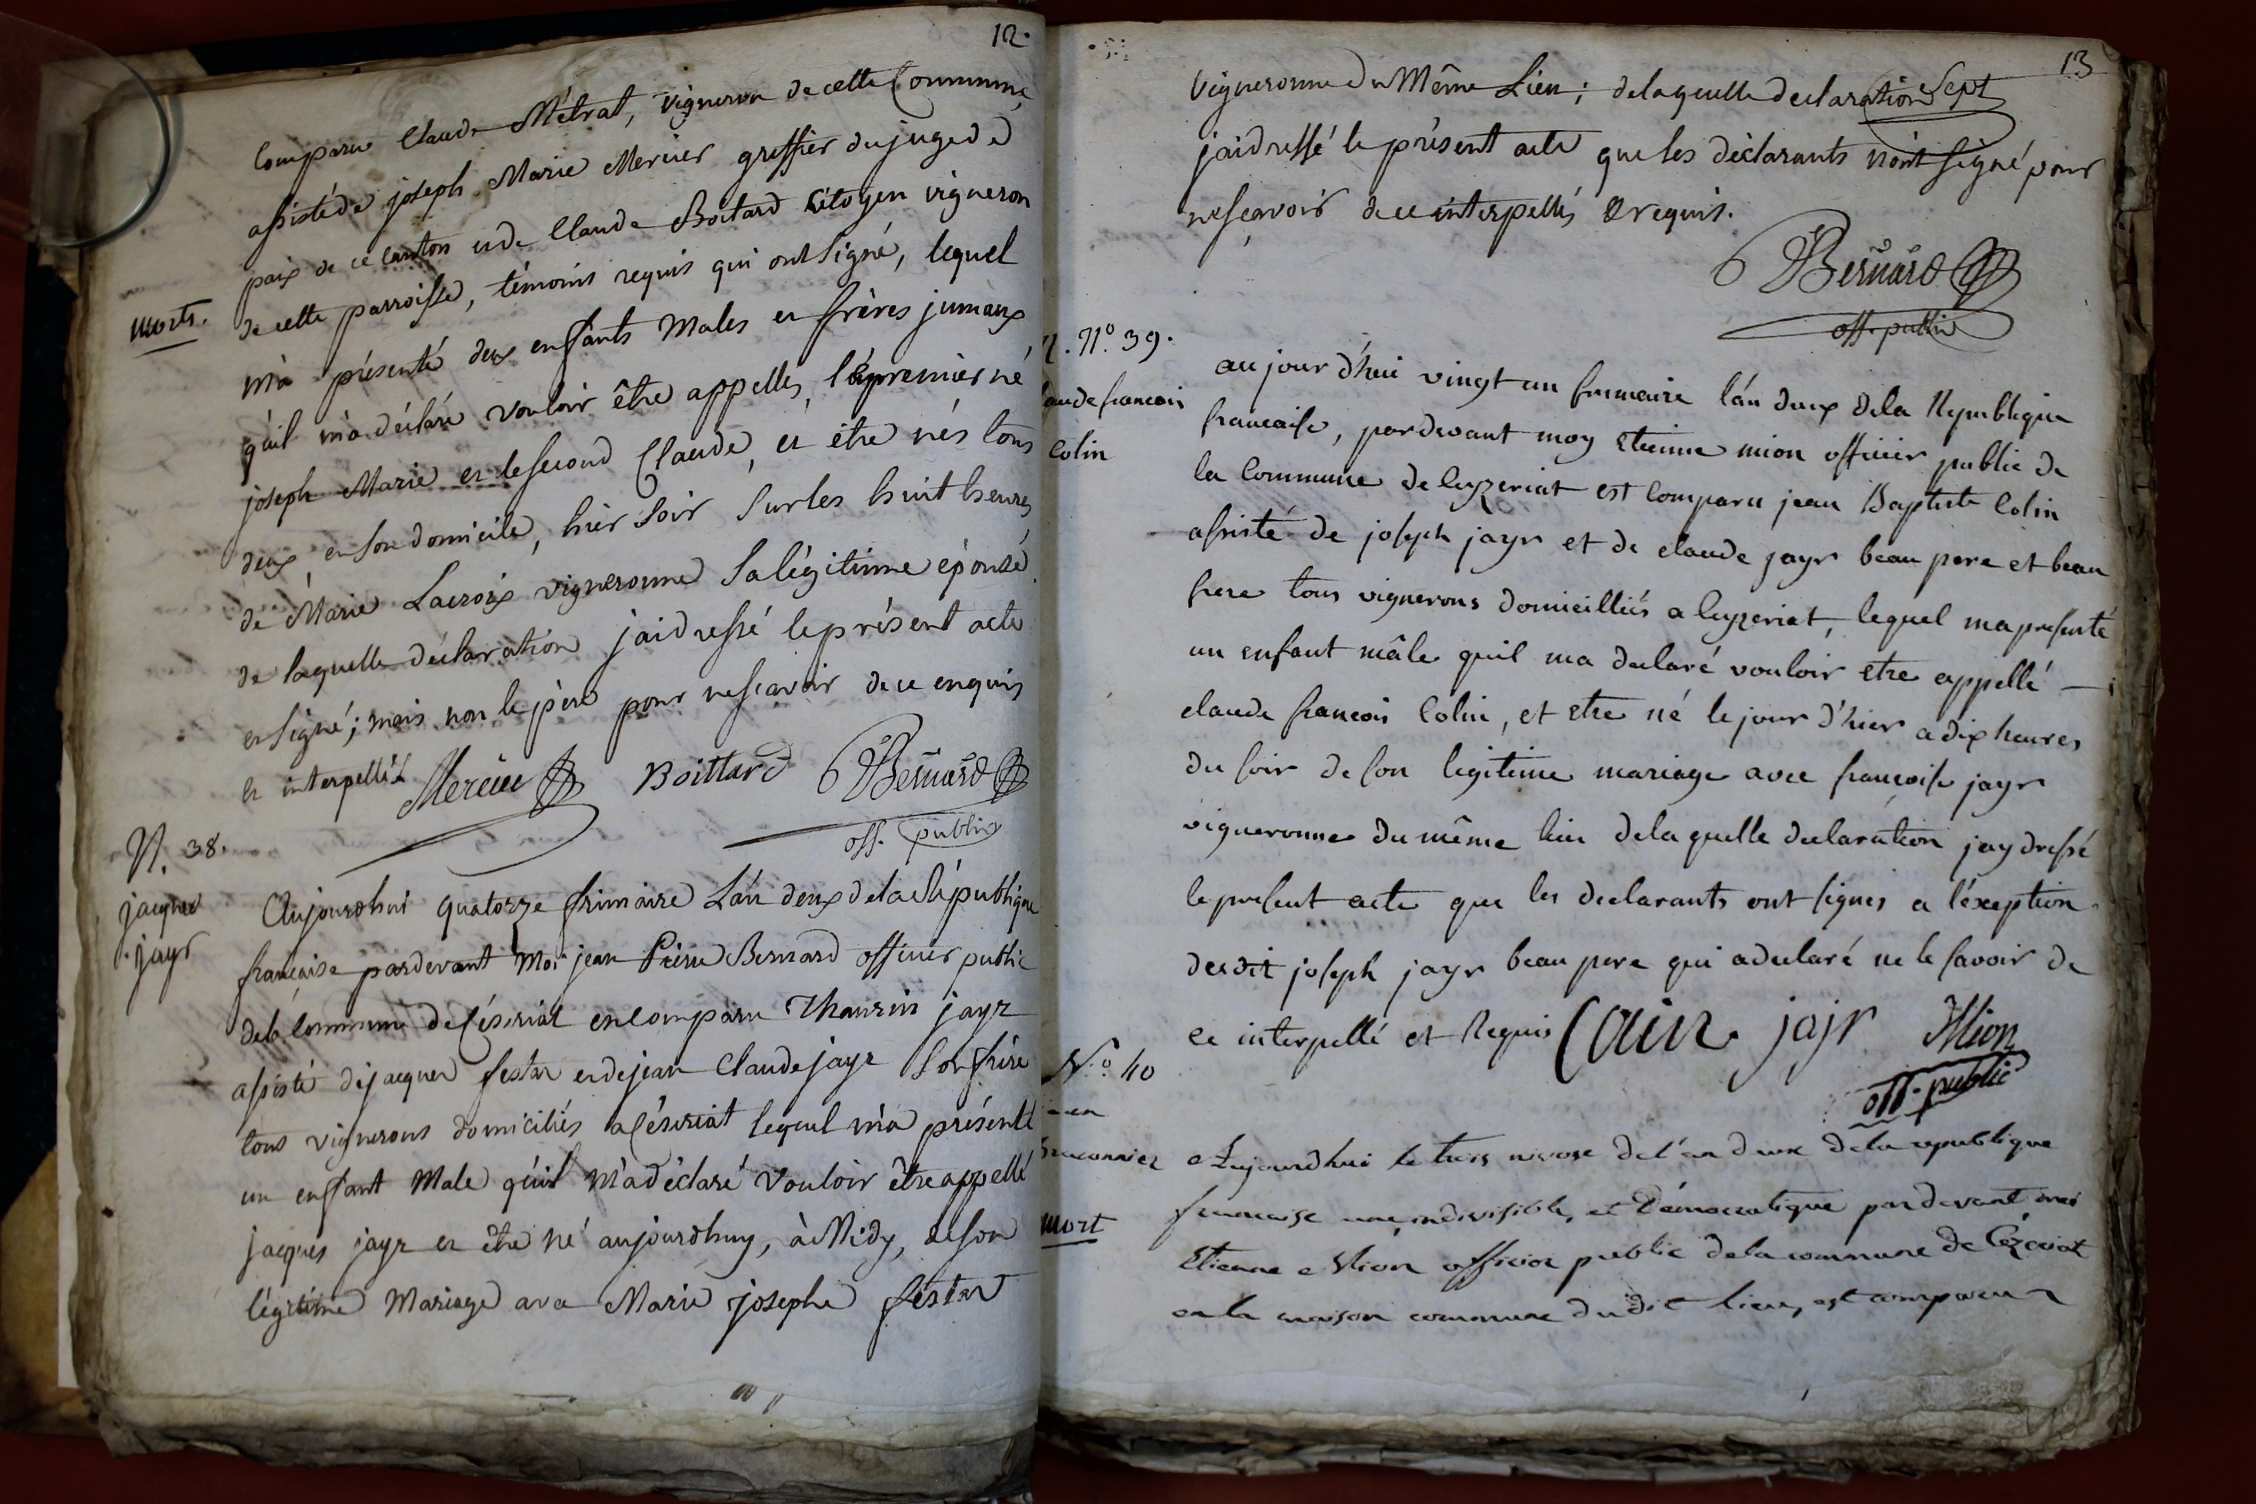 12.
Comparu Claude Métrat, vigneron de cette Commune,
assisté de joseph Marie Mercier greffier du juge de
paix de ce canton et de Claude Boitard Citoyen vigneron
de cette parroisse, témoins requis qui ont signé, lequel
morts.
m'à présenté deux enfants Males et frères jumeaux
qu'il m'à déclaré vouloir être appellés, le premier né
joseph Marie et le second Claude, et être nés tous
deux en son domicile, hier soir sur les huit heures,
de Marie Lacroix vigneronne sa légitime épouse.
de laquelle déclaration j'ai dressé le présent acte
et signé; mais non le père pour ne sçavoir de ce enquis
et interpellé
Mercier Boittard Bernard
off. public
N. 38.
jacques
jayr
Aujourdhui quatorze frimaire L'an deux de la République
française pardevant Moi jean Pierre Bernard officier public
de la Commune de Césériat en comparu Thaurin jayr
assisté de jacques festar et de jean Claude jayr son frère
tous vignerons domiciliés à Césériat lequel m'à présenté
un enfant Male qu'il m'à déclaré vouloir être appellé
jacques jayr et être né aujourdhuy, à Midy, de son
légitime Mariage avec Marie josephe festar
13
vigneronne du Même Lieu; de laquelle declaration Sept
j'ai dressé le présent acte que les déclarants n'ont signé pour
ne sçavoir de ce interpellés & requis.
Bernard
off. public
N.º 39.
aude francois
Colin
aujourd'hui vingt un frimaire l'an deux de la Republique
francaise, pardevant moy Etienne mion officier public de
la Commune de Ceyzeriat est Comparu jean Baptiste Colin
assisté de joseph jayr et de claude jayr beau pere et beau
frere tous vignerons domicilliés a Ceyzeriat, lequel ma presenté
un enfant mâle quil ma declaré vouloir etre appellé
claude francois Colin, et etre né le jour d'hier a dix heures
du soir de son legitime mariage avec francoise jayr
vigneronne du même lieu de laquelle declaration jay dressé
le present acte que les declarants ont signés a l'éxception
dudit joseph jayr beau pere qui a declaré ne le savoir de
ce interpellé et Requis Colin jayr Mion
off. public
N.º 40
mort
Aujourdhui le trois nivose de l'an deux de la republique
francaise une, indivisible, et Démocratique pardevant moi
Etienne Mion officier public de la commune de Cézeriat
en la maison commune dudit lieu, est comparu